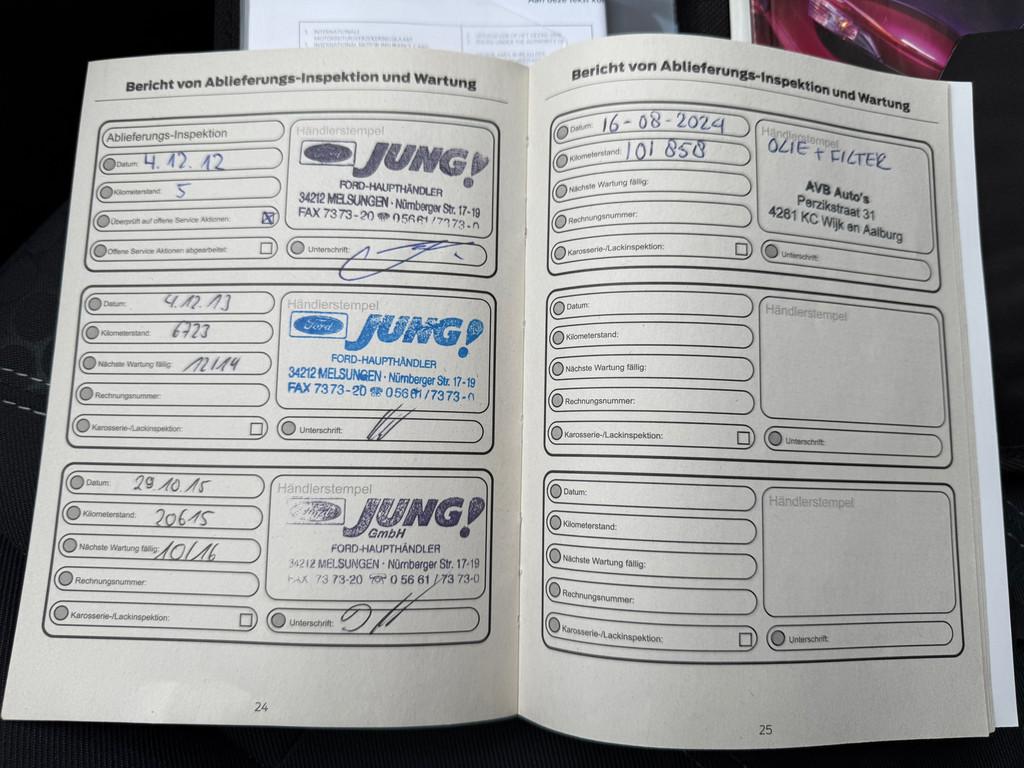 Aan deze tekst ko
1 INTERNATIONALE
MOTORRIJTUIGVERZEKERINGSKAART
1 INTERNATIONAL MOTOR INSURANCE CARD
Bericht von Ablieferungs-Inspektion und Wartung
Ablieferungs-Inspektion
Datum: 4.12.12
Kilometerstand: 5
Überprüft auf offene Service Aktionen:
Offene Service Aktionen abgearbeitet:
Händlerstempel
JUNG!
FORD-HAUPTHÄNDLER
34212 MELSUNGEN · Nürnberger Str. 17-19
FAX 7373-20 ☎ 05661/7373-0
Unterschrift:
Datum: 4.12.13
Kilometerstand: 6723
Nächste Wartung fällig: 12/14
Rechnungsnummer:
Karosserie-/Lackinspektion:
Händlerstempel
Ford JUNG!
FORD-HAUPTHÄNDLER
34212 MELSUNGEN · Nürnberger Str. 17-19
FAX 7373-20 ☎ 05661/7373-0
Unterschrift:
Datum: 29.10.15
Kilometerstand: 20615
Nächste Wartung fällig: 10/16
Rechnungsnummer:
Karosserie-/Lackinspektion:
Händlerstempel
JUNG!
GmbH
FORD-HAUPTHÄNDLER
34212 MELSUNGEN · Nürnberger Str. 17-19
FAX 73 73-20 ☎ 0 56 61 / 73 73-0
Unterschrift:
24
Bericht von Ablieferungs-Inspektion und Wartung
Datum: 16-08-2024
Kilometerstand: 101 858
Nächste Wartung fällig:
Rechnungsnummer:
Karosserie-/Lackinspektion:
Händlerstempel
OLIE + FILTER
AVB Auto's
Perzikstraat 31
4261 KC Wijk en Aalburg
Unterschrift:
Datum:
Kilometerstand:
Nächste Wartung fällig:
Rechnungsnummer:
Karosserie-/Lackinspektion:
Händlerstempel
Unterschrift:
Datum:
Kilometerstand:
Nächste Wartung fällig:
Rechnungsnummer:
Karosserie-/Lackinspektion:
Händlerstempel
Unterschrift:
25